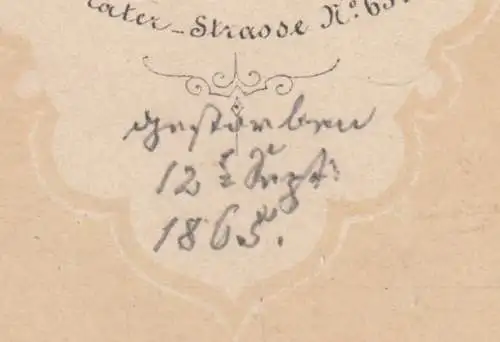 rater-Strasse No. 65
gestorben
12t Sept:
1865.